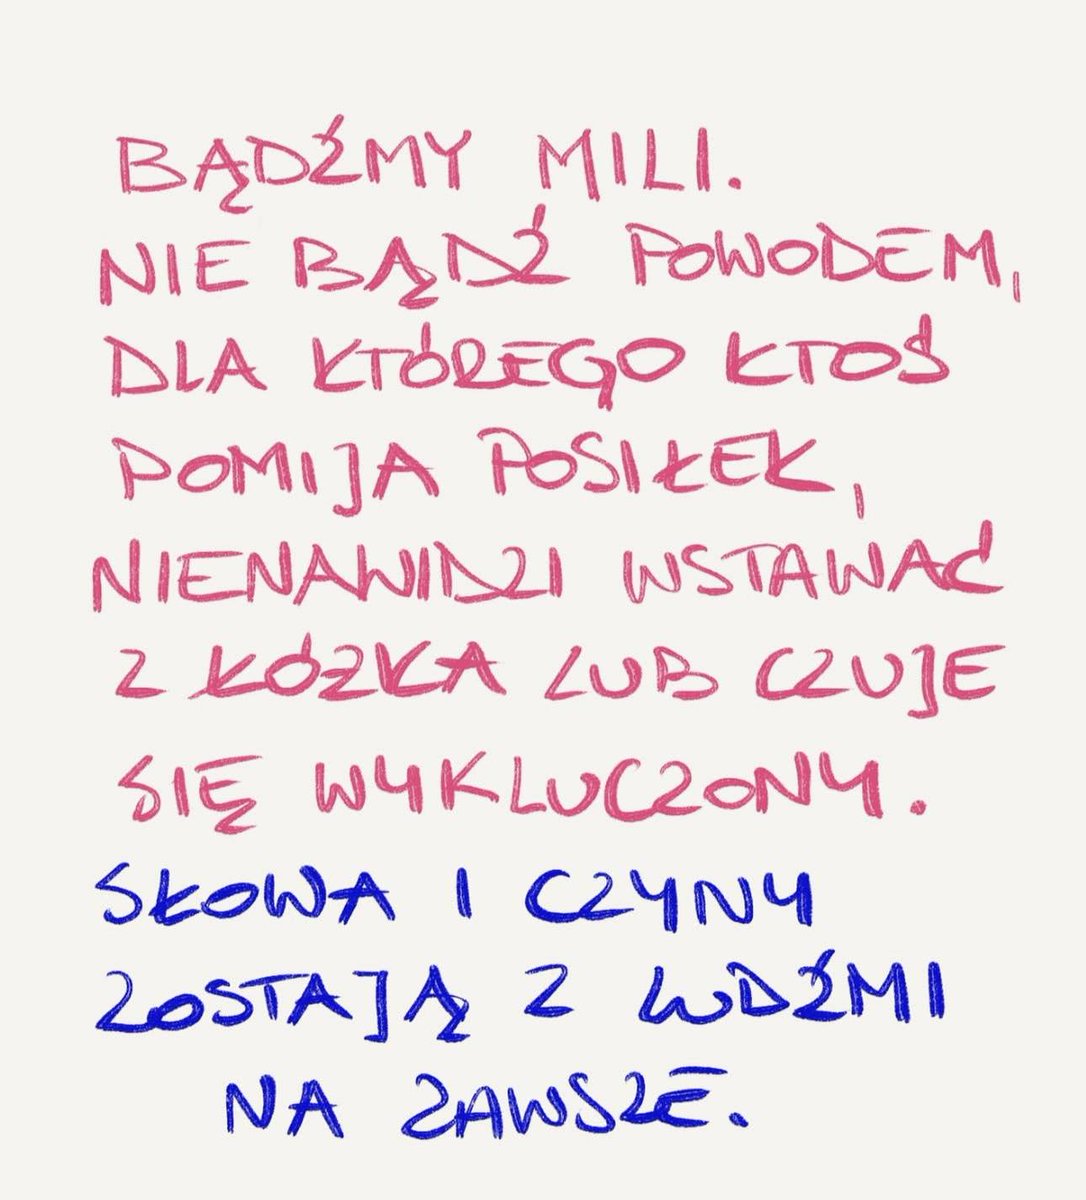 BĄDŹMY MILI.
NIE BĄDŹ POWODEM,
DLA KTÓREGO KTOŚ
POMIJA POSIŁEK,
NIENAWIDZI WSTAWAĆ
Z ŁÓZKA LUB CZUJE
SIĘ WYKLUCZONY.
SŁOWA I CZYNY
ZOSTAJĄ Z LUDŹMI
NA ZAWSZE.